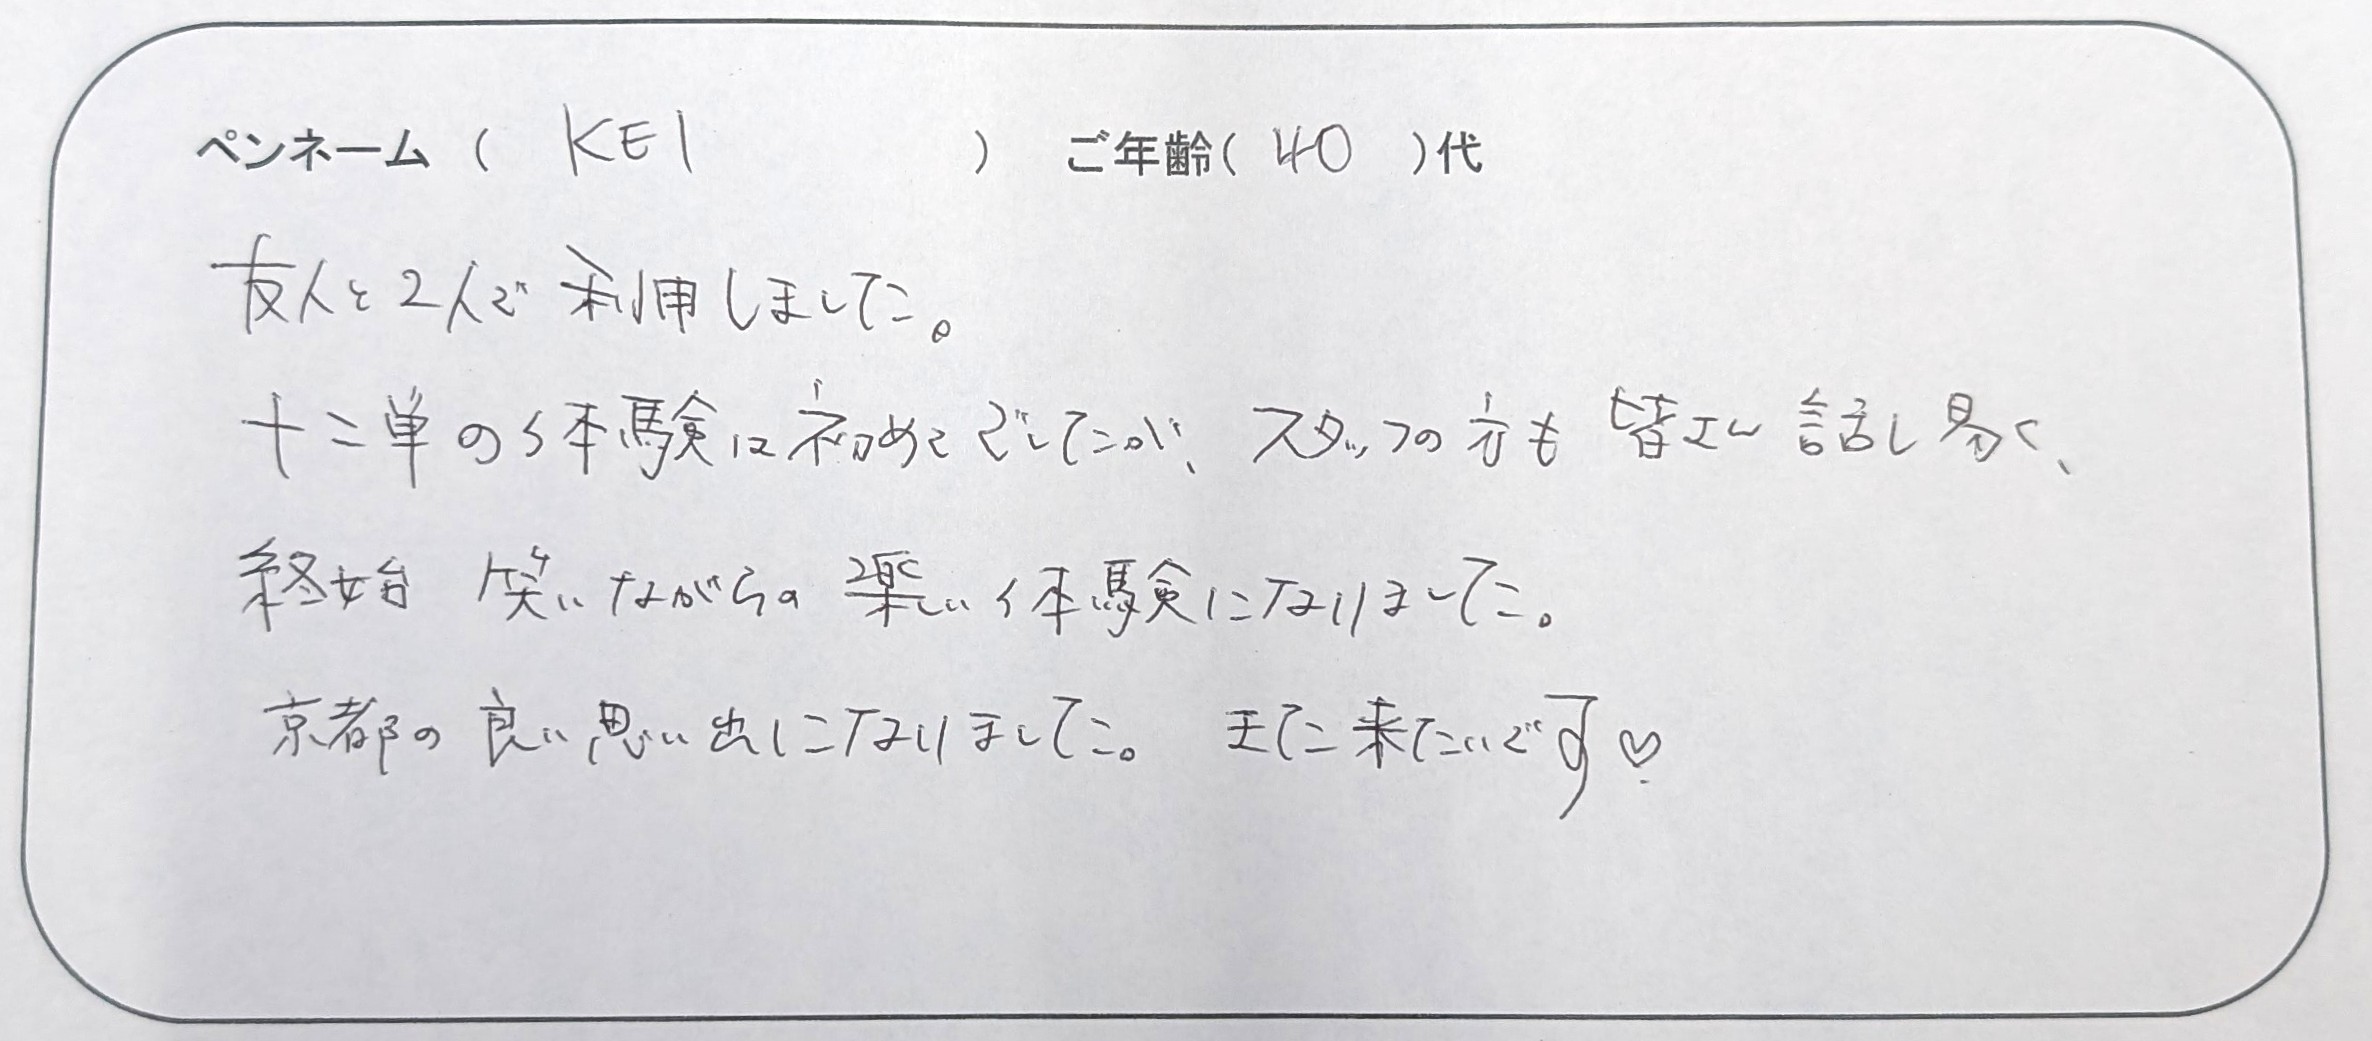 ペンネーム ( KEI ) ご年齢( 40 )代
友人と2人で利用しました。
十二単の体験は初めてでしたが、スタッフの方も皆さん話し易く、
終始 笑いながらの楽しい体験になりました。
京都の良い思い出になりました。 また来たいです♡